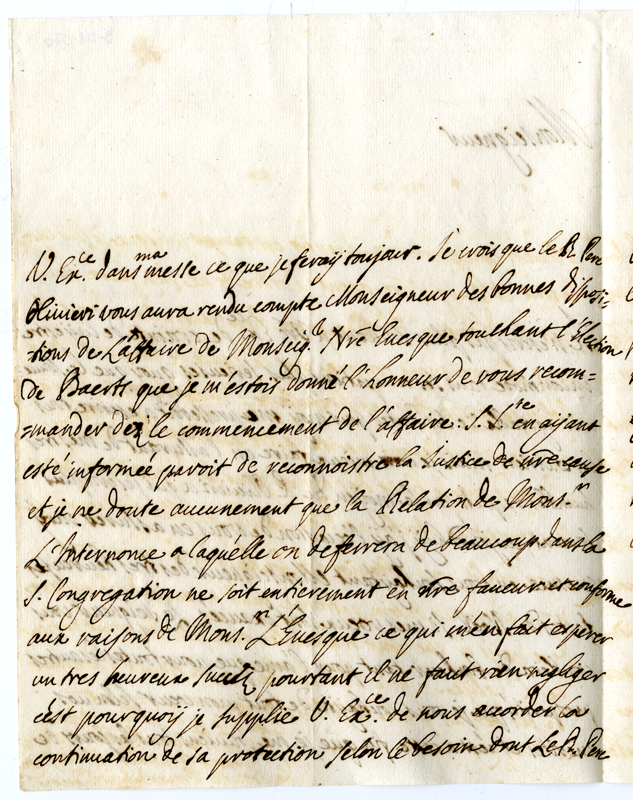 V. Ex.ce dans ma messe ce que je feray toujour. Je crois que le R. Pere
Olivieri vous aura rendu compte Monseigneur des bonnes disposi=
=tions de L'affaire de Monseig.r Nre Evesque touchant l'Election
de Baerts que je m'estois donné l'honneur de vous recom=
=mander dez le commencement de l'affaire. S. en aijant
esté informeé paroit de reconnoistre la Justice de nre cause
et je ne doute aucunement que la Relation de Mons.r
L'Internonce a laquélle on deferrera de beaucoup dans la
S. Congregation ne soit entierement en nre faveur et conforme
aux raisons de Mons.r L'Evesque ce qui m'en fait esperer
un tres heureux succez pourtant il ne faut rien negliger
c'ést pourquoij je supplie V. Ex.ce de nous accorder la
continuation de sa protection selon le besoin dont Le R. Pere
Monseigneur